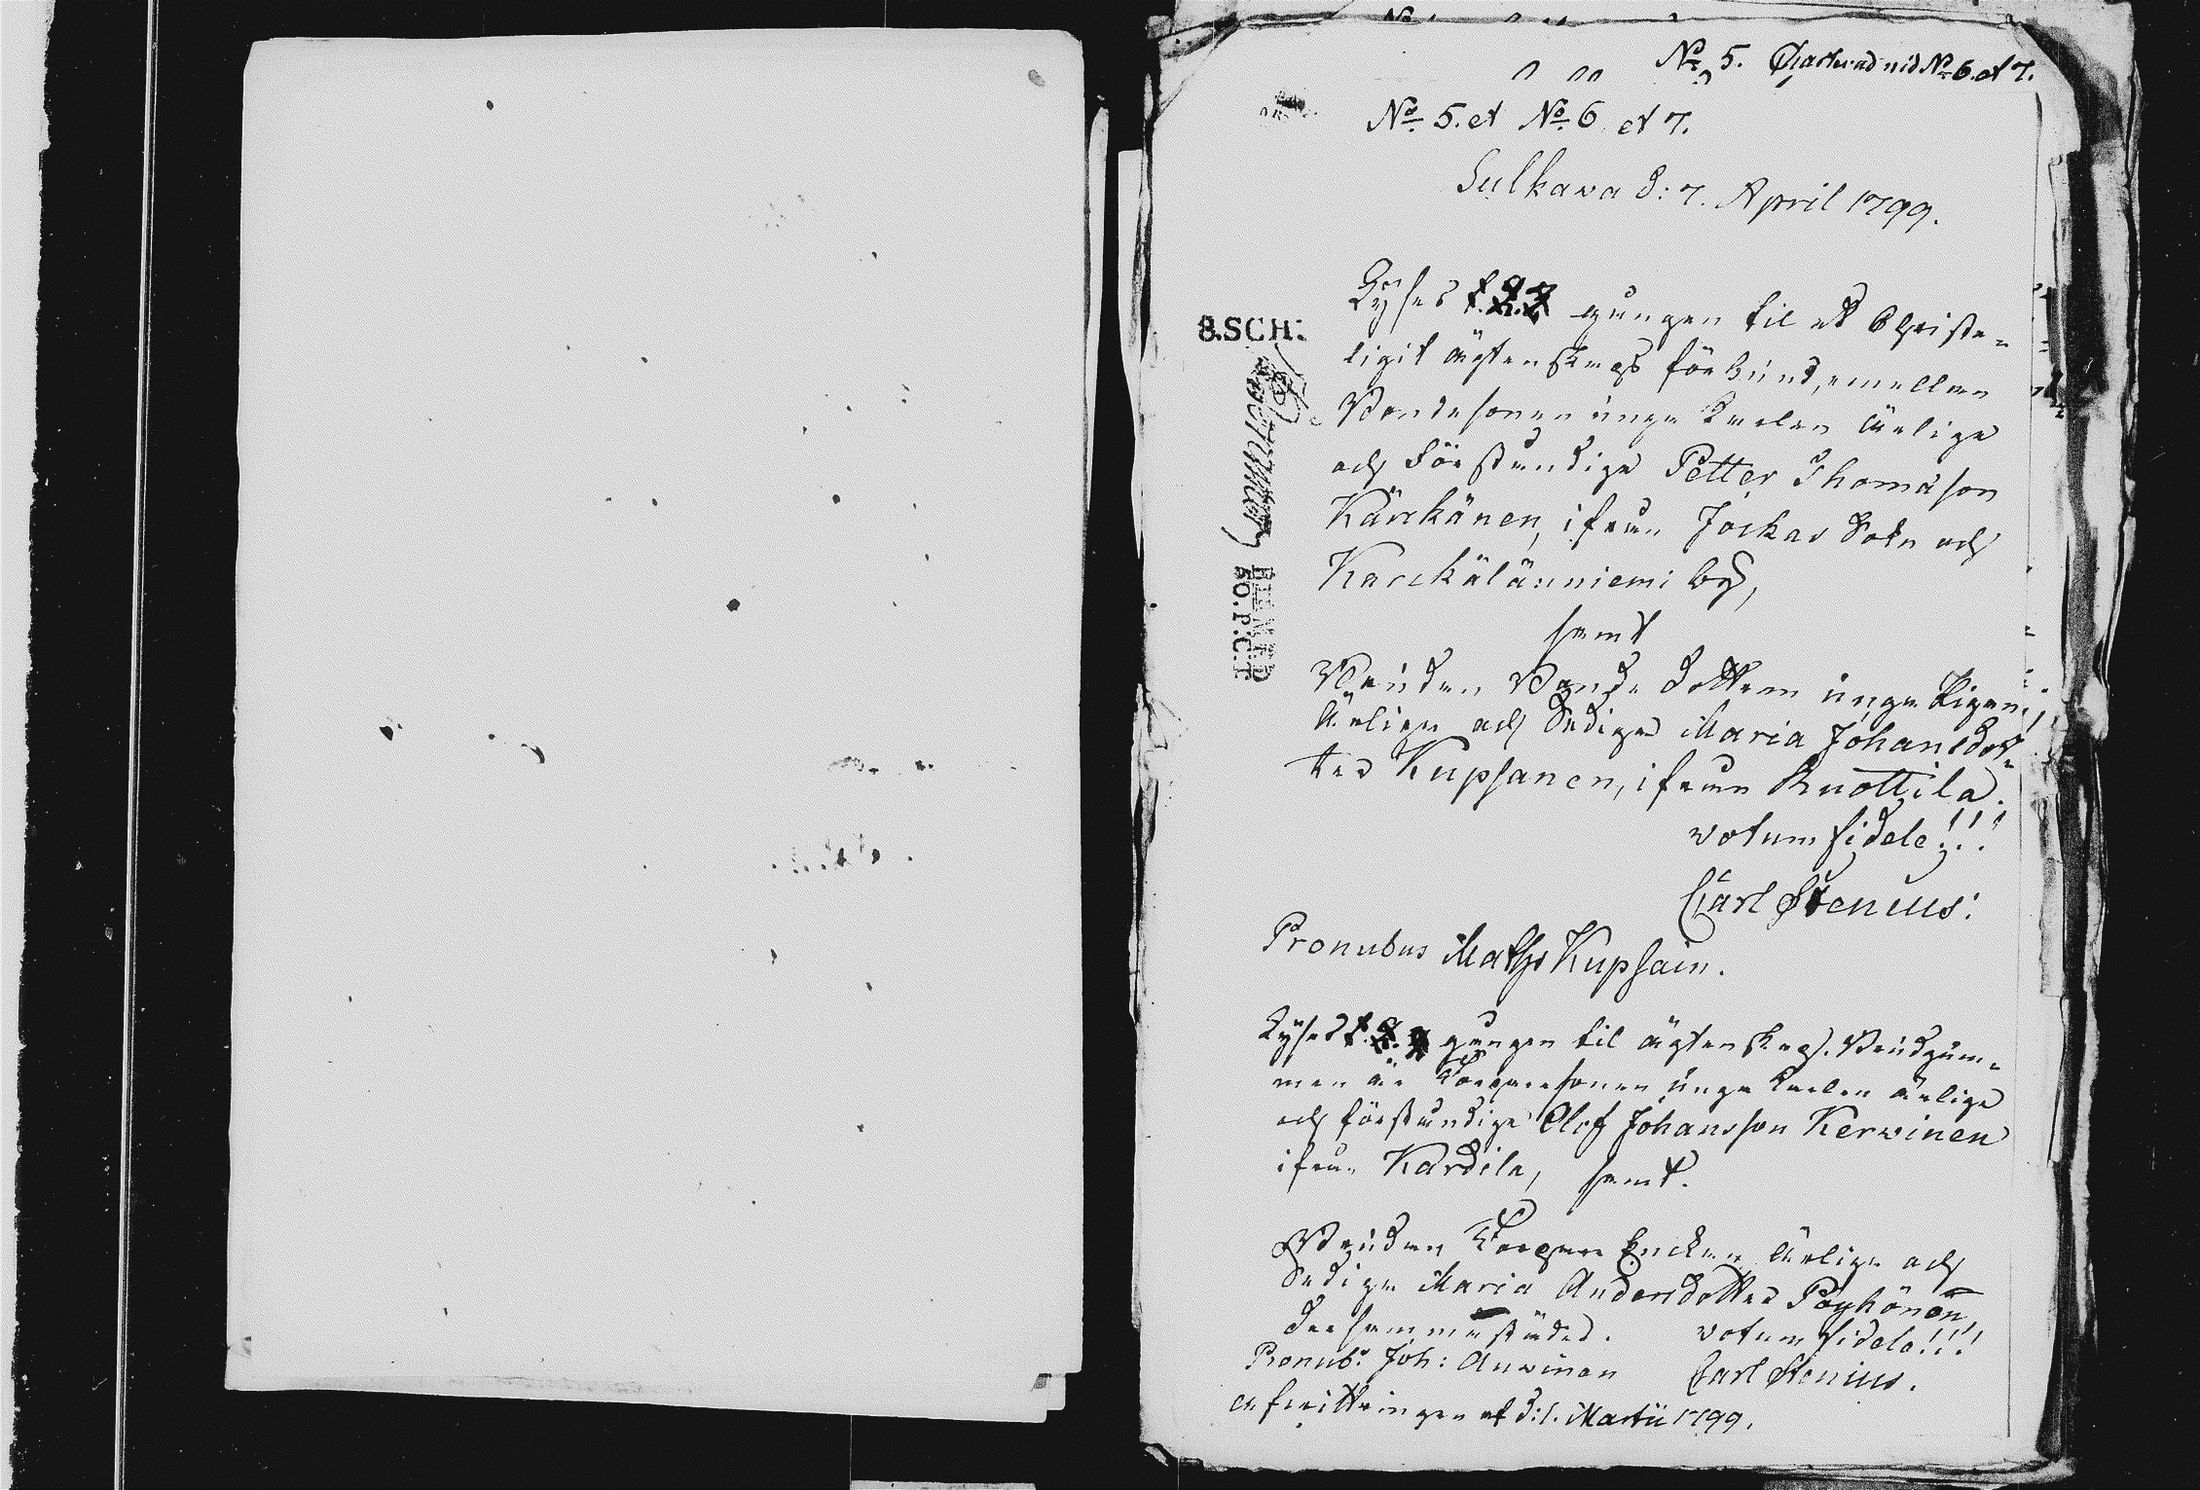 No 5. Qvarterad vid No 6. et 7.
No 5. et No 6 et 7.
Sulkava d: 7. April 1799.
8.SCH:
BEUMED
50.P:C:T
Lyses t. 2. 3 gången til et Christe-
ligit ägtenskaps förbund, emellan
Bondesonen unge Karlen ärlige
och Förståndige Petter Thomason
Kärkänen, ifrån Jockas Sokn och
Karckälänniemi by,
samt
Bruden Bonde dottern unge Pigan,
ärliga och Sediga Maria Johansdot-
ter Kupsanen, ifrån Ruottila.
votum fidele!!!
Carl Stenius.
Pronubus Maths Kupsain.
Lyses 1. 2. 3 gången til ägtenskap. Brudgum-
men är Torparesonen unge Karlen ärlige
och förståndige Olof Johansson Kervinen
ifrån Kardila, samt.
Bruden Torpare Enckan ärliga och
Sediga Maria Andersdotter Pöyhönen
därsammastädes. votum fidele!!!
Pronub: Joh: Auvinen Carl Stenius.
afvittringen af d: 1. Martii 1799.